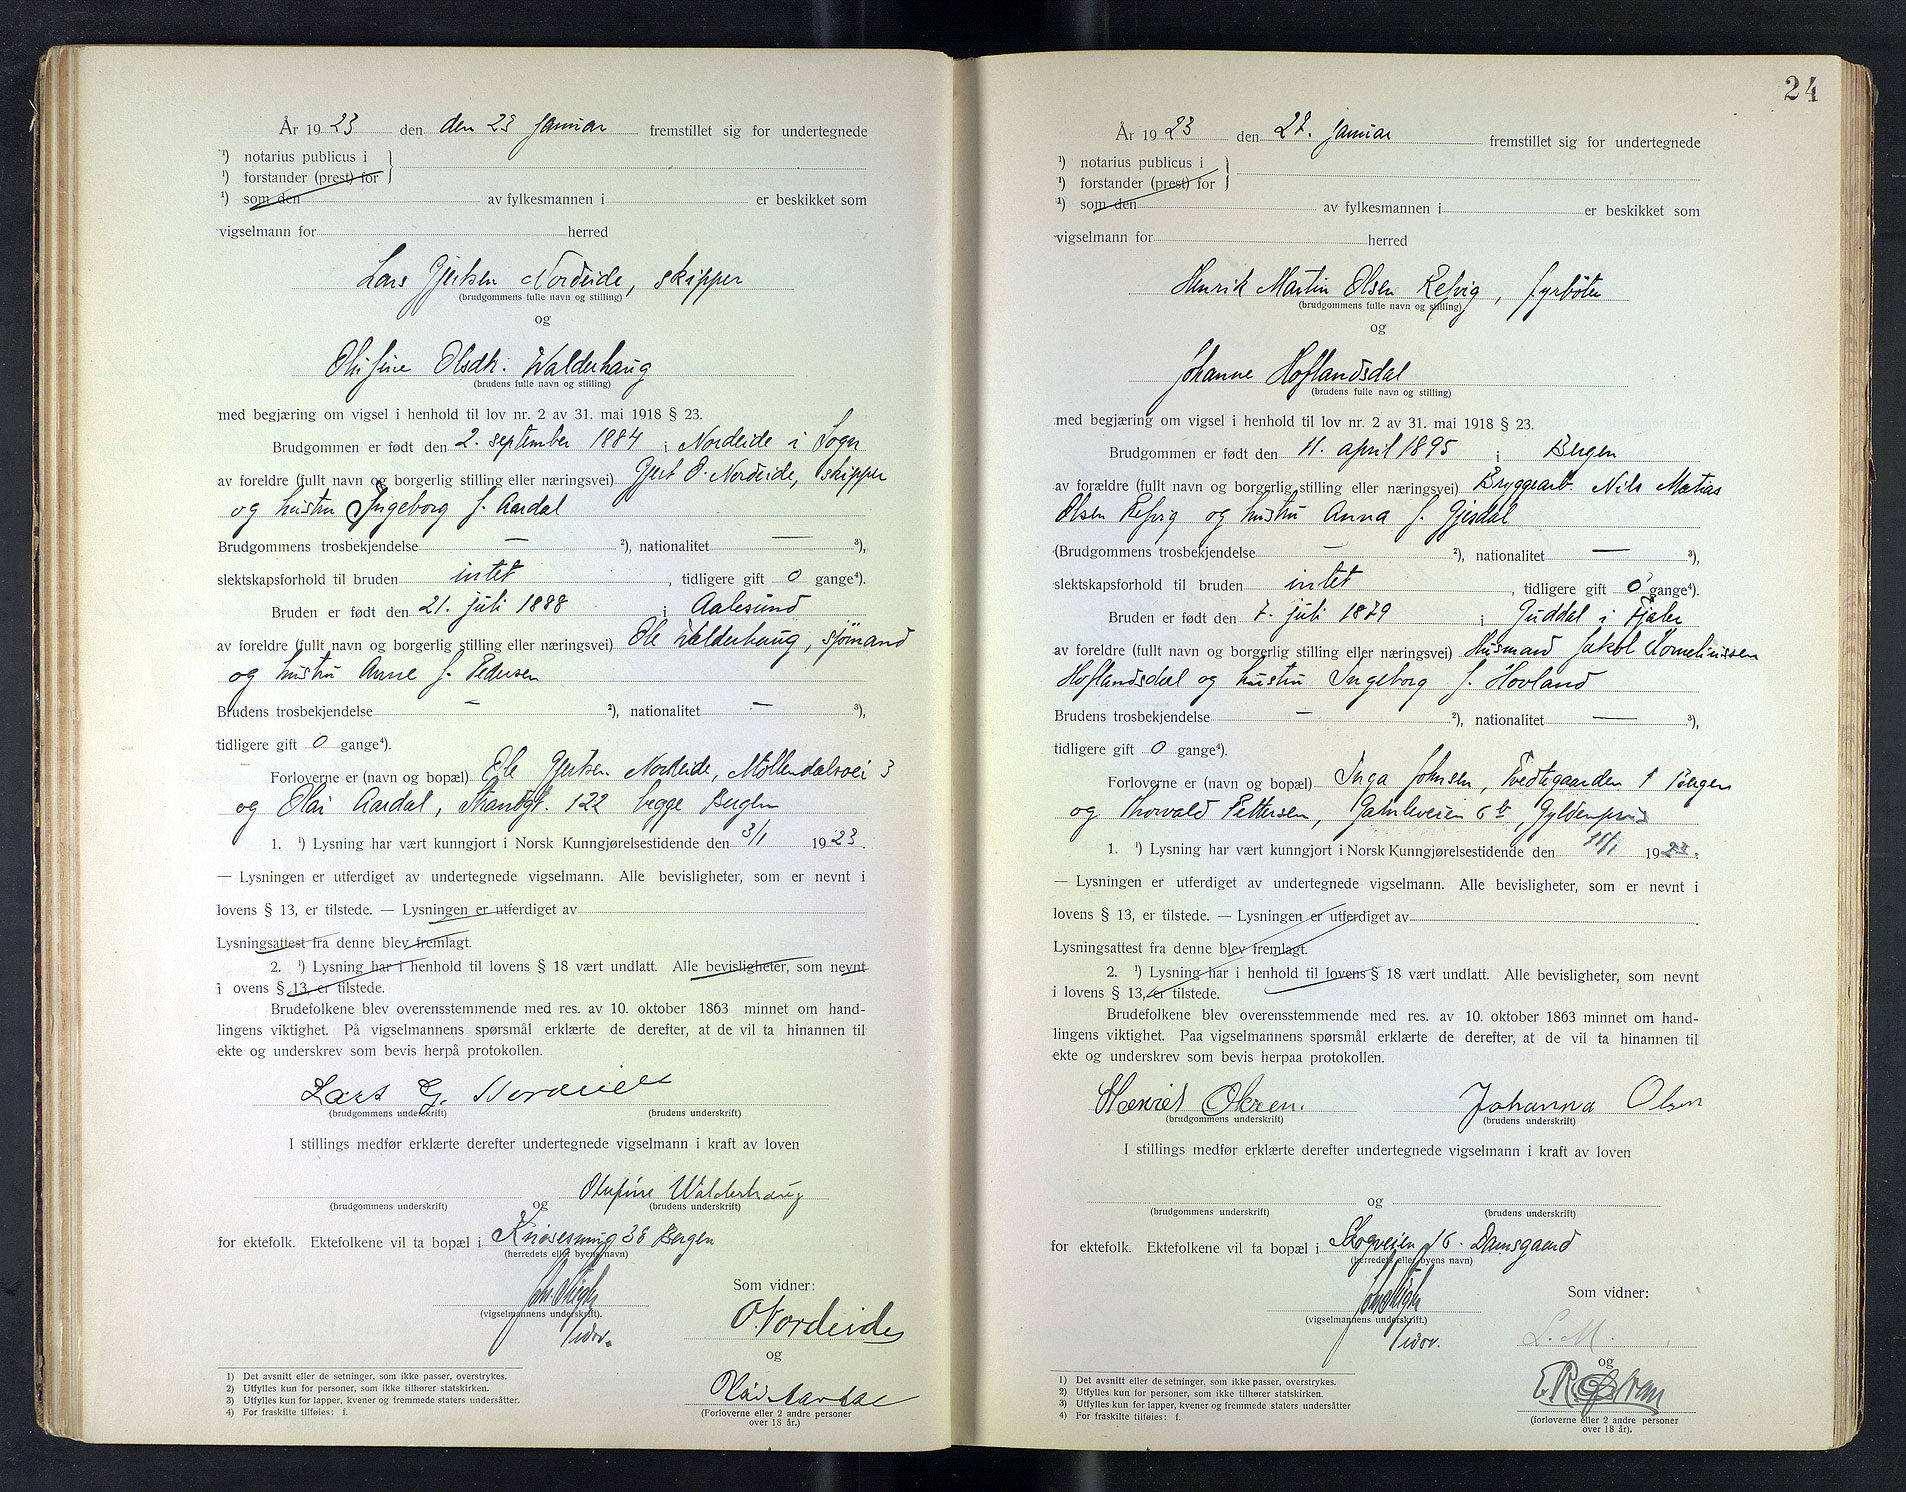 År 1923 den den 23 januar fremstillet sig for undertegnede
¹) notarius publicus i
¹) forstander (prest) for
¹) som den av fylkesmannen i er beskikket som
vigselmann for herred
Lars Gjertsen Nordeide, skipper
(brudgommens fulle navn og stilling)
og
Olufine Olsdtr. Walderhaug
(brudens fulle navn og stilling)
med begjæring om vigsel i henhold til lov nr. 2 av 31. mai 1918 § 23.
Brudgommen er født den 2. september 1884 i Nordeide i Sogn
av foreldre (fullt navn og borgerlig stilling eller næringsvei) Gjert O. Nordeide, skipper
og hustru Ingeborg f. Aardal
Brudgommens trosbekjendelse — ²), nationalitet — ³),
slektskapsforhold til bruden intet, tidligere gift 0 gange⁴).
Bruden er født den 21. juli 1888 i Aalesund
av foreldre (fullt navn og borgerlig stilling eller næringsvei) Ole Walderhaug, sjømand
og hustru Anne f. Pedersen
Brudens trosbekjendelse — ²), nationalitet — ³),
tidligere gift 0 gange⁴).
Forloverne er (navn og bopæl) Ole Gjertsen Nordeide, Möllendalsvei 3
og Olai Aardal, Strandgt. 122 begge Bergen
1. ¹) Lysning har vært kunngjort i Norsk Kunngjørelsestidende den 3/1 1923.
— Lysningen er utferdiget av undertegnede vigselmann. Alle bevisligheter, som er nevnt i
lovens § 13, er tilstede. — Lysningen er utferdiget av
Lysningsattest fra denne blev fremlagt.
2. ¹) Lysning har i henhold til lovens § 18 vært undlatt. Alle bevisligheter, som nevnt
i ovens § 13, er tilstede.
Brudefolkene blev overensstemmende med res. av 10. oktober 1863 minnet om hand-
lingens viktighet. På vigselmannens spørsmål erklærte de derefter, at de vil ta hinannen til
ekte og underskrev som bevis herpå protokollen.
Lars G. Nordeide
(brudgommens underskrift) (brudens underskrift)
I stillings medfør erklærte derefter undertegnede vigselmann i kraft av loven
og Olufine Walderhaug
(brudgommens underskrift) (brudens underskrift)
for ektefolk. Ektefolkene vil ta bopæl i Knøsesmug 38 Bergen
(herredets eller byens navn)
Som vidner:
(vigselmannens underskrift).
O. Nordeide
og
(Forloverne eller 2 andre personer
over 18 år.)
1) Det avsnitt eller de setninger, som ikke passer, overstrykes.
2) Utfylles kun for personer, som ikke tilhører statskirken.
3) Utfylles kun for lapper, kvener og fremmede staters undersåtter.
4) For fraskilte tilføies: f.
24
År 1923 den 27. januar fremstillet sig for undertegnede
¹) notarius publicus i
¹) forstander (prest) for
¹) som den av fylkesmannen i er beskikket som
vigselmann for herred
Henrik Martin Olsen Refvig, fyrbøter
(brudgommens fulle navn og stilling)
og
Johanne Hoflandsdal
(brudens fulle navn og stilling)
med begjæring om vigsel i henhold til lov nr. 2 av 31. mai 1918 § 23.
Brudgommen er født den 11. april 1895 i Bergen
av forældre (fullt navn og borgerlig stilling eller næringsvei) Bryggearb. Nils Matias
Olsen Refvig og hustru Anna f. Gjesdal
(Brudgommens trosbekjendelse — ²), nationalitet — ³),
slektskapsforhold til bruden intet, tidligere gift 0 gange⁴).
Bruden er født den 7. juli 1879 i Guddal i Fjaler
av foreldre (fullt navn og borgerlig stilling eller næringsvei) Husmand Jakob Korneliussen
Hoflandsdal og hustru Ingeborg f. Hovland
Brudens trosbekjendelse — ²), nationalitet — ³),
tidligere gift 0 gange⁴).
Forloverne er (navn og bopæl) Inga Johnsen, Tvedtegaarden 1 Bergen
og Thorvald Pettersen, Gamleveien 6 b, Gyldenpris
1. ¹) Lysning har vært kunngjort i Norsk Kunngjørelsestidende den 11/1 1923.
— Lysningen er utferdiget av undertegnede vigselmann. Alle bevisligheter, som er nevnt i
lovens § 13, er tilstede. — Lysningen er utferdiget av
Lysningsattest fra denne blev fremlagt.
2. ¹) Lysning har i henhold til lovens § 18 vært undlatt. Alle bevisligheter, som nevnt
i lovens § 13, er tilstede.
Brudefolkene blev overensstemmende med res. av 10. oktober 1863 minnet om hand-
lingens viktighet. Paa vigselmannens spørsmål erklærte de derefter, at de vil ta hinannen til
ekte og underskrev som bevis herpaa protokollen.
Henrik Olsen. Johanna Olsen
(brudgommens underskrift) (brudens underskrift)
I stillings medfør erklærte derefter undertegnede vigselmann i kraft av loven
og
(brudgommens underskrift) (brudens underskrift)
for ektefolk. Ektefolkene vil ta bopæl i Skogveien 16. Damsgaard
(herredets eller byens navn)
Som vidner:
(vigselmannens underskrift.)
L. M.
og
(forloverne eller 2 andre personer
over 18 år).
1) Det avsnitt eller de setninger, som ikke passer, overstrykes.
2) Utfylles kun for personer, som ikke tilhører statskirken.
3) Utfylles kun for lapper, kvener og fremmede staters undersåtter
4) For fraskilte tilføies: f.